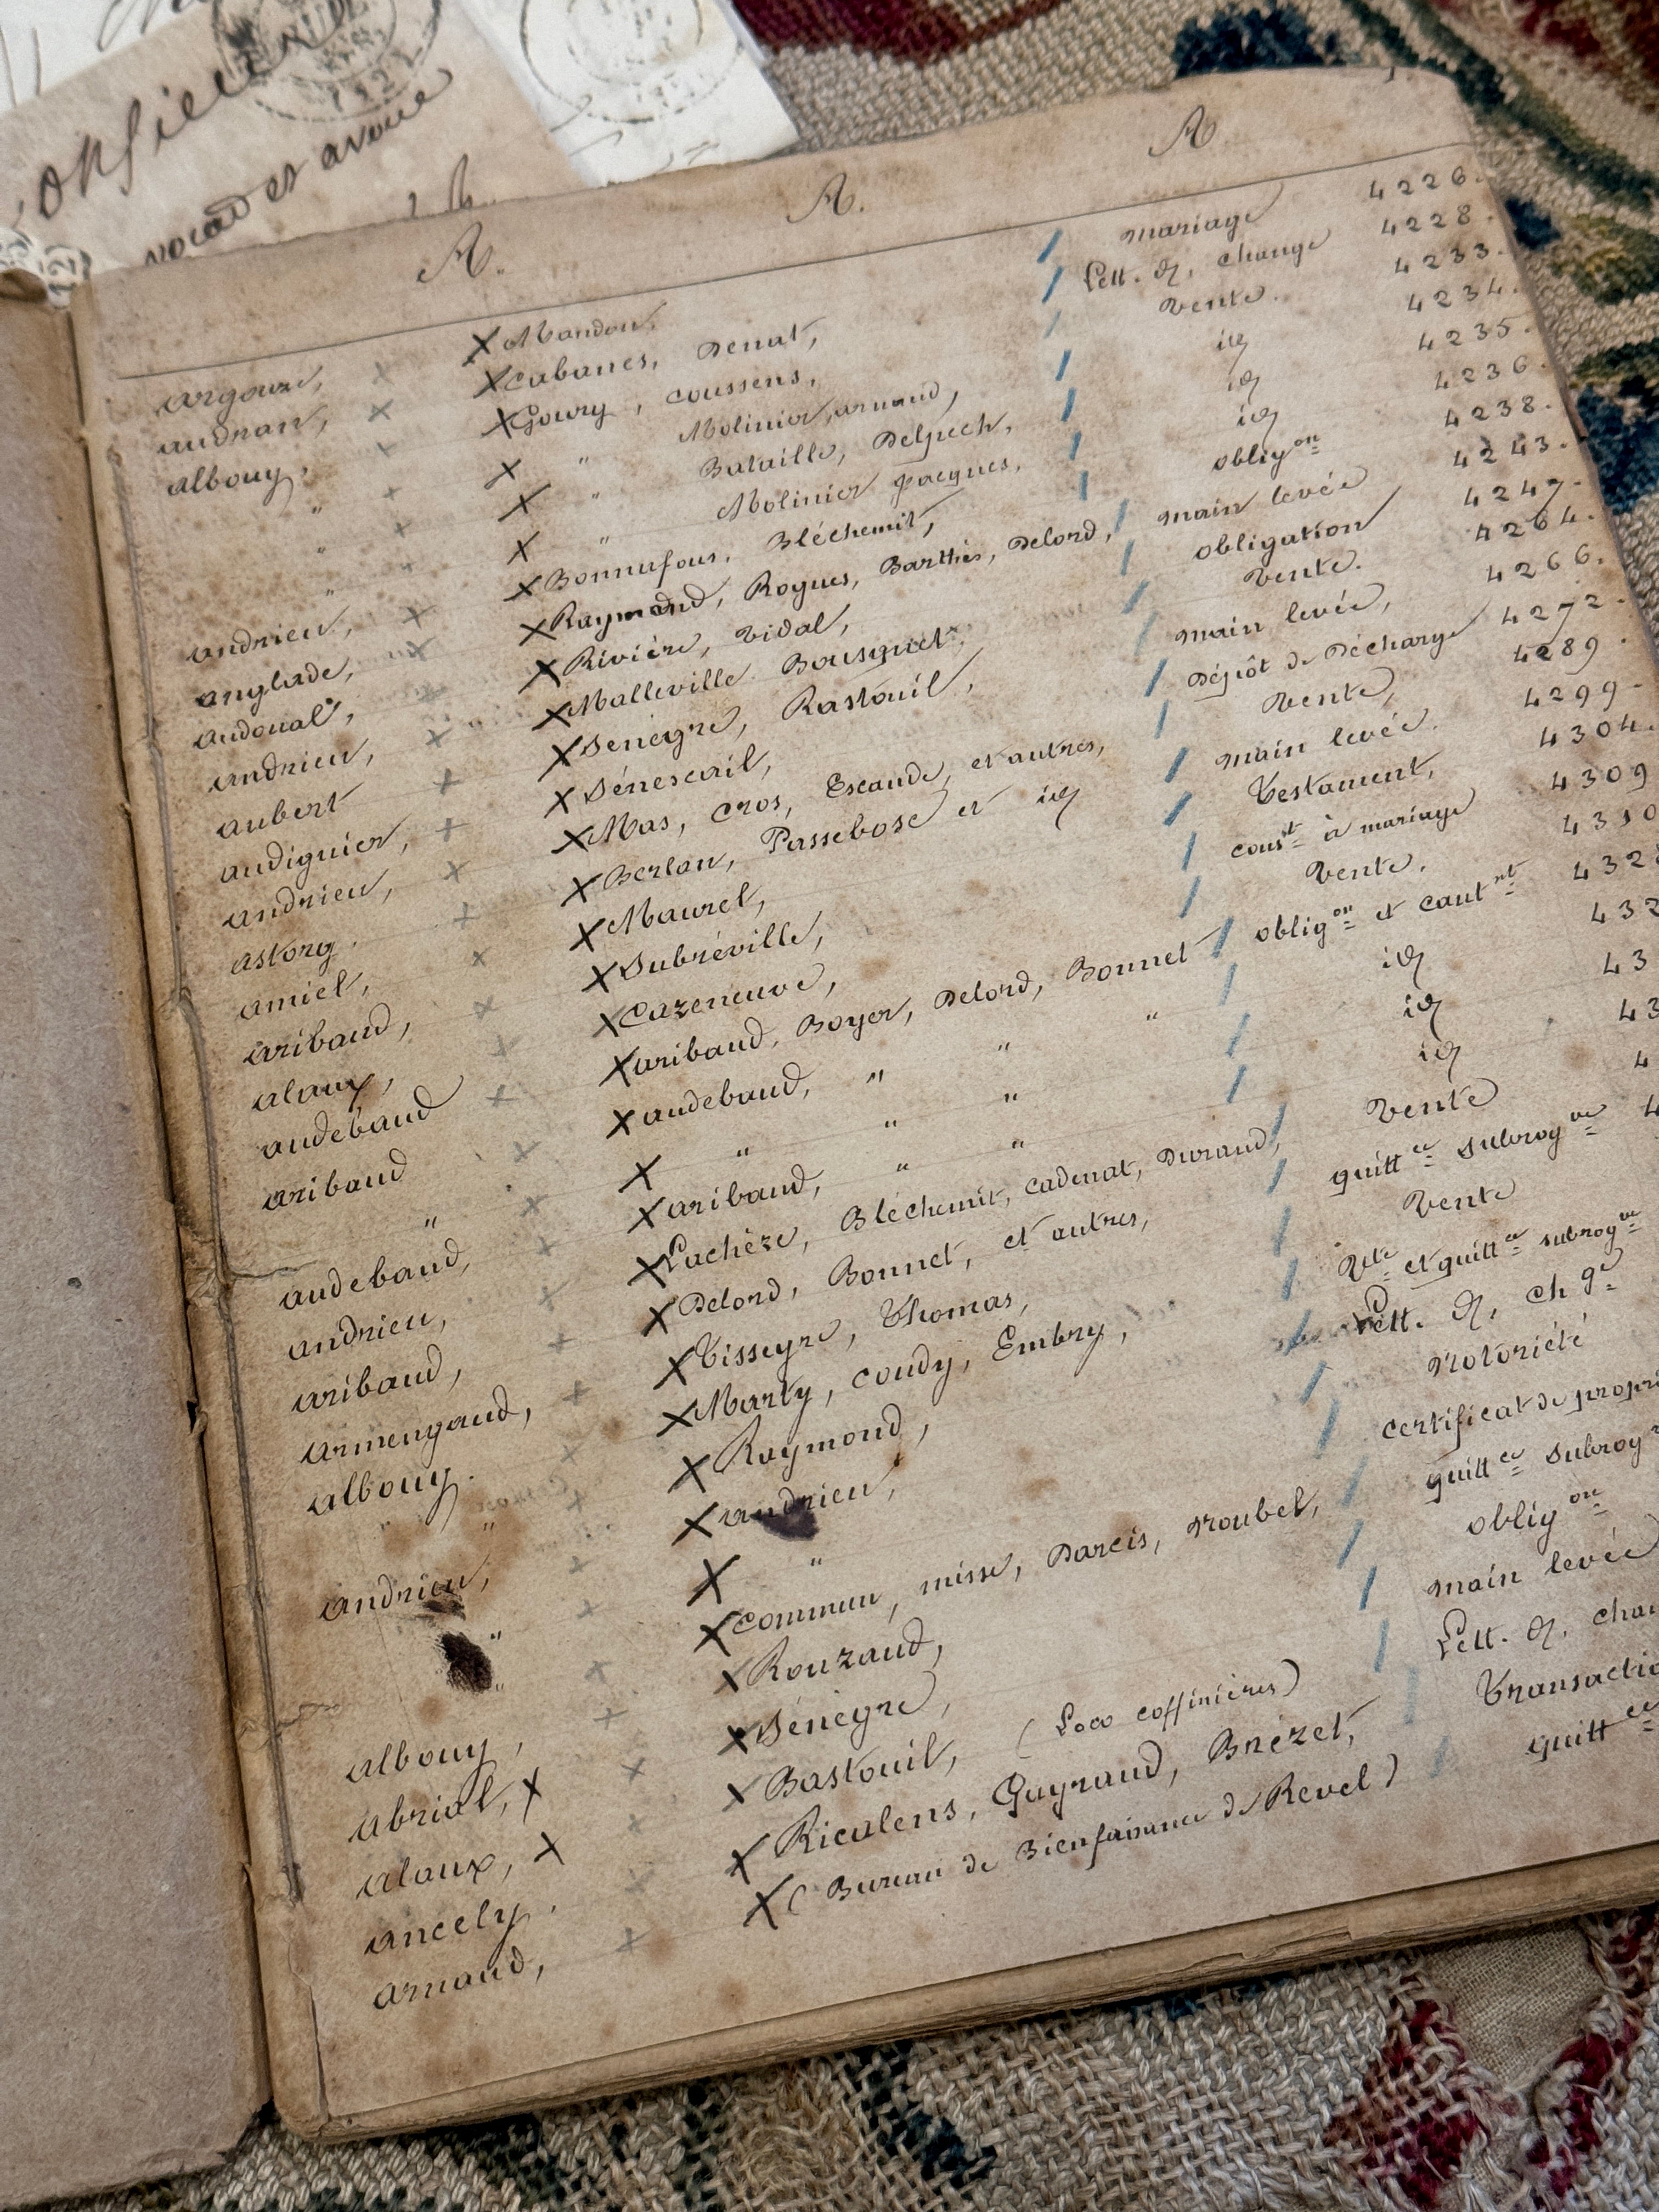 onsieur
avocat et avoué
A. A. A
argoux, × Mandou, mariage 4226.
audran, × Cabanes, Denat, Lett. de change 4228.
albouy, × Goury, coussens, vente. 4233.
" × " Molinier, arnaud, id 4234.
" × " Bataille, Delpech, id 4235.
" × " Molinier Jacques, id 4236.
andrieu, × Bonnafous, Bléchemit, oblig on 4238.
anglade, × Raymond, Rogues, Barthès, Delord, main levée 4243.
audoual, × Rivière, Vidal, obligation 4247.
andrieu, × Malleville Bousquet, vente. 4264.
aubert × Sénégre, Rastouil, main levée, 4266.
audiguier, × Sénescail, Dépôt de Décharge 4272.
andrieu, × Mas, cros, Escande, et autres, vente, 4289.
astorg. × Berlan, Passebosc et id main levée. 4299.
amiel, × Maurel, Testament, 4304.
aribaud, × Subréville, const à mariage 4309
alaux, × Cazeneuve, vente. 4310
audebaud × aribaud, Boyer, Delord, Bonnet oblig on et caut nt 432
aribaud × audebaud, " " " id 432
" × " " " id 43
audebaud, × aribaud, " " id 43
andrieu, × Lachèze, Bléchemit, cadenat, Durand, vente 4
aribaud, × Delord, Bonnet, et autres, quitt ce subrog ve 4
armengaud, × Tisseyre, Thomas, vente
albouy. × Marty, coudy, Embry, Vte et quitt ce subrog ve
" × Raymond, Lett. de ch ge
andrieu, × andrieu, notoriété
" × " certificat de propri
" × commun, misse, Darcis, Roubel, quitt ce subrog
albouy, × Rouzaud, oblig on
abrial, × × Sénégre, main levée
alaux, × × Bastouil, (Loco coffinières) Lett. de chan
ancely. × Riculens, Gayraud, Brézet, Transactio
arnaud, × (Bureau de Bienfaisance de Revel) quitt ce